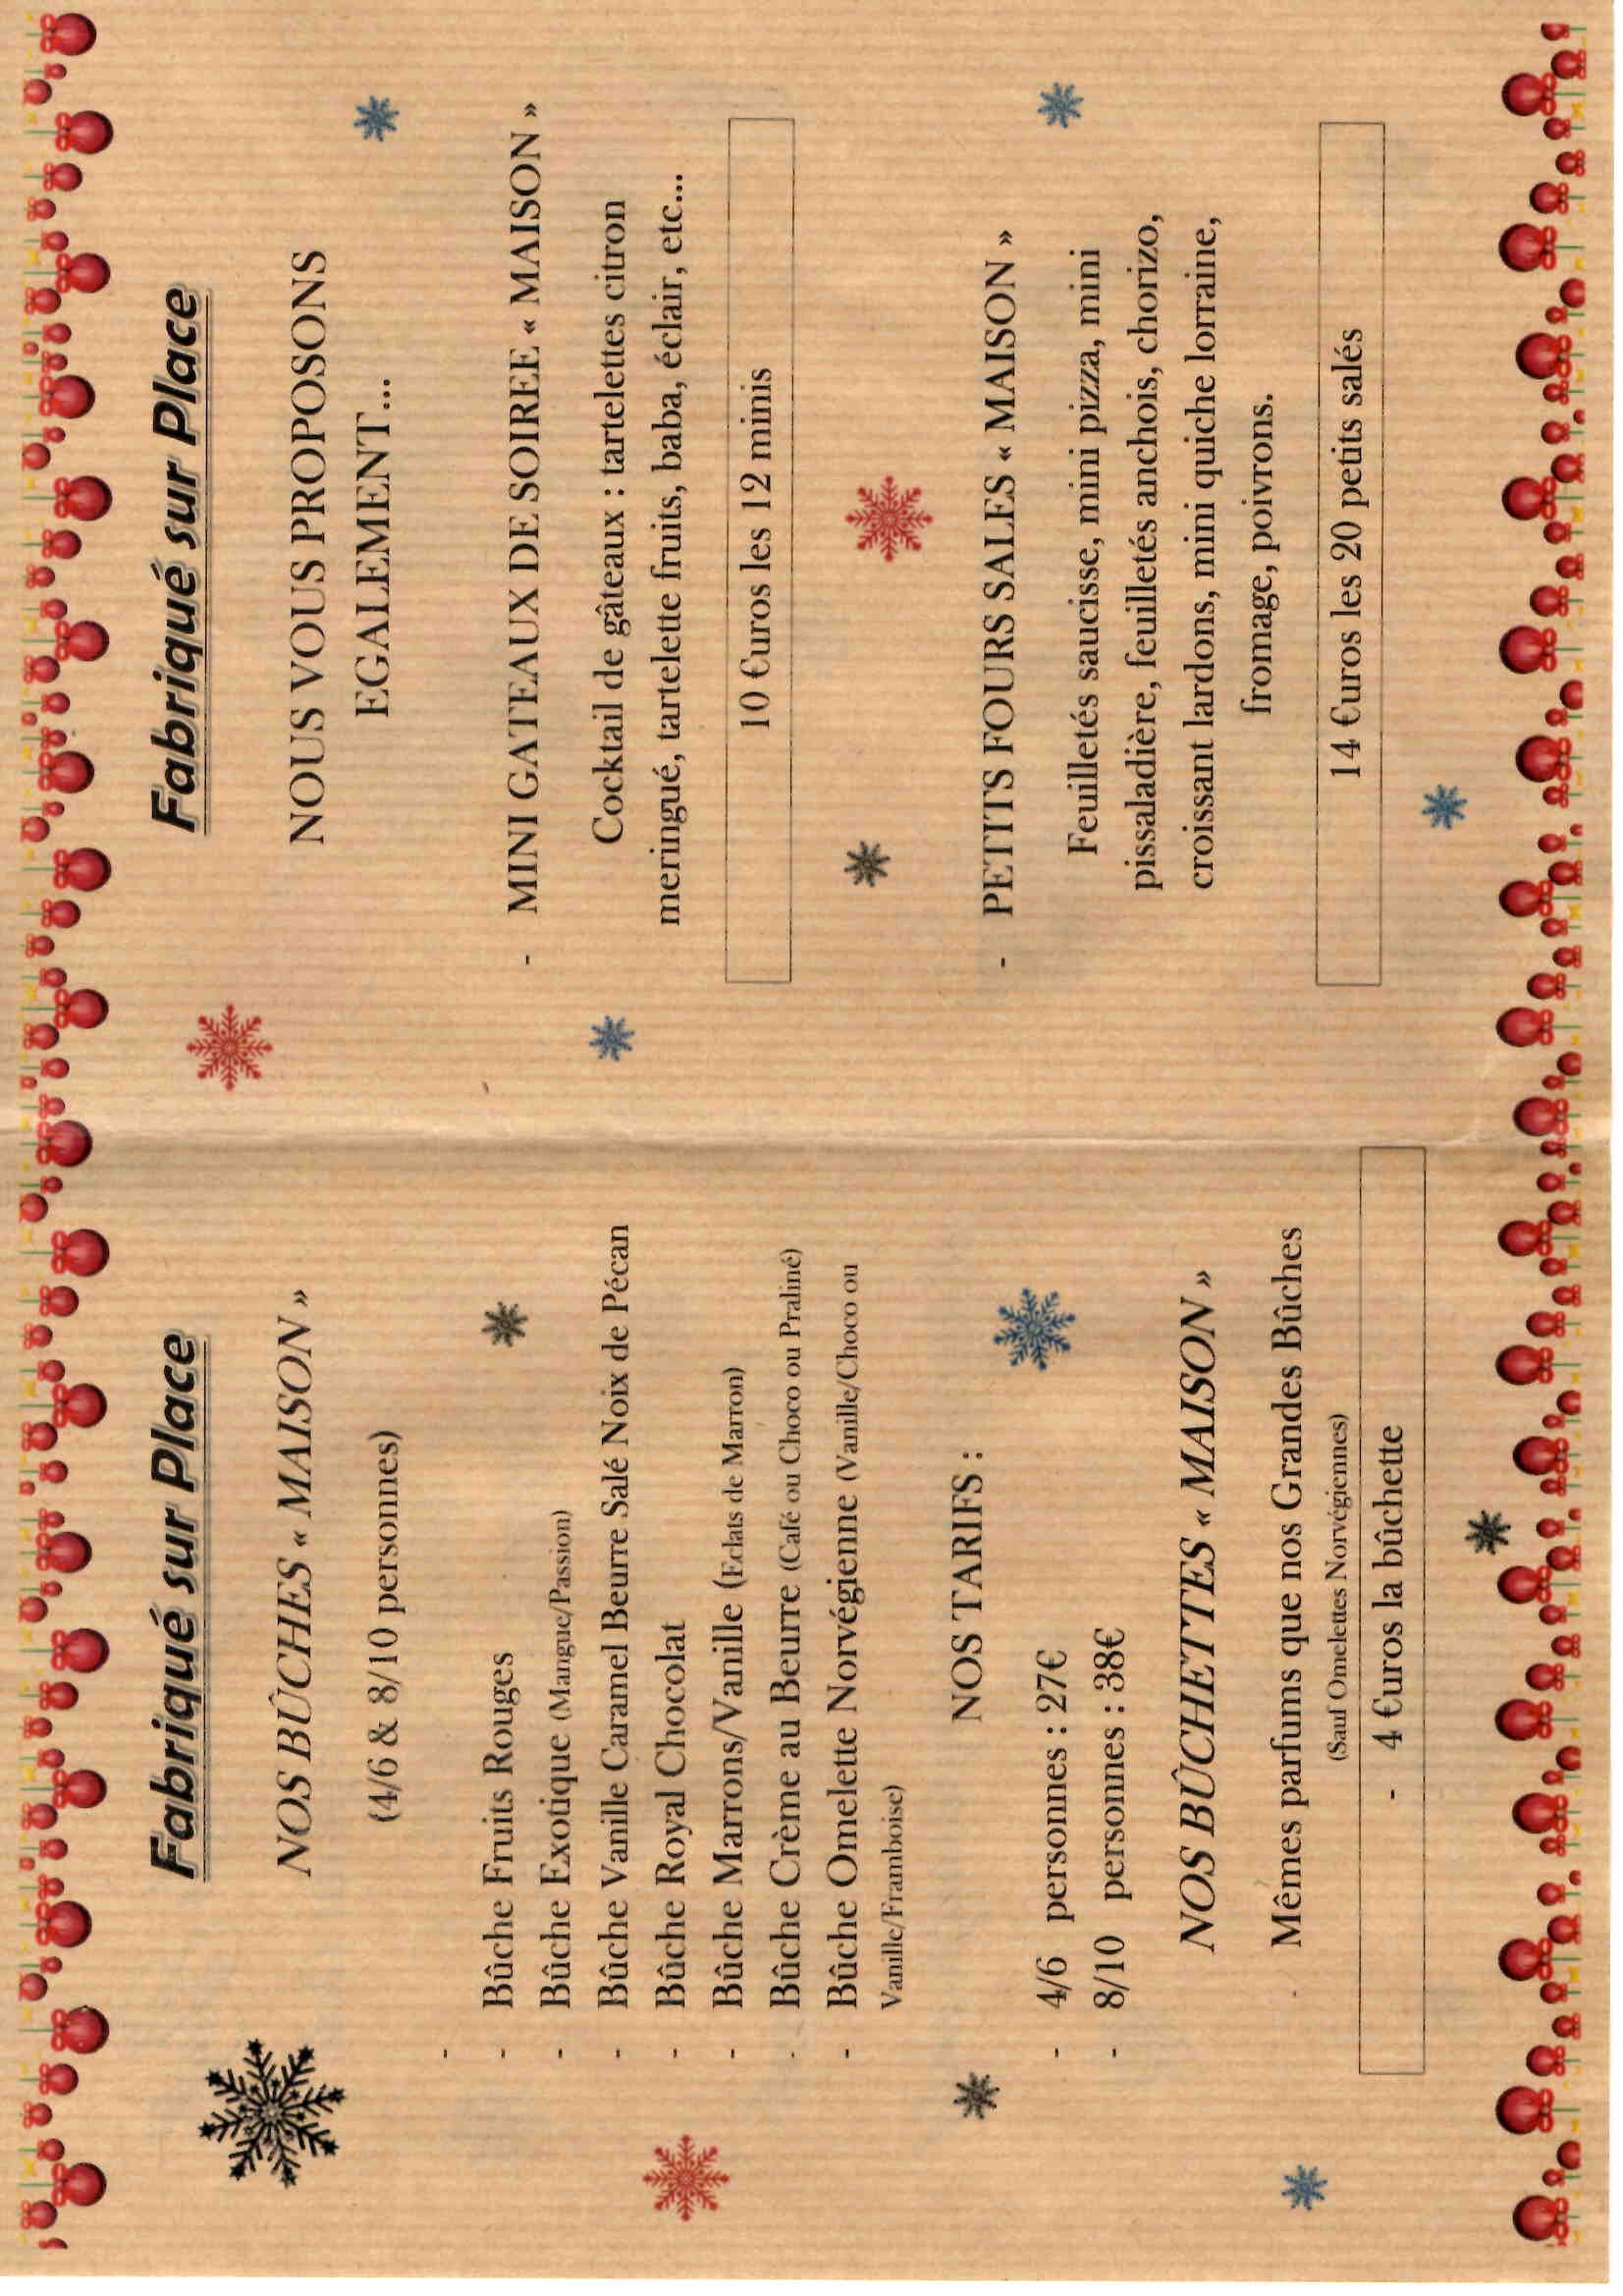 Fabriqué sur Place
NOS BÛCHES « MAISON »
(4/6 & 8/10 personnes)
-
- Bûche Fruits Rouges
- Bûche Exotique (Mangue/Passion)
- Bûche Vanille Caramel Beurre Salé Noix de Pécan
- Bûche Royal Chocolat
- Bûche Marrons/Vanille (Eclats de Marron)
- Bûche Crème au Beurre (Café ou Choco ou Praliné)
- Bûche Omelette Norvégienne (Vanille/Choco ou
Vanille/Framboise)
NOS TARIFS :
- 4/6 personnes : 27€
- 8/10 personnes : 38€
NOS BÛCHETTES « MAISON »
Mêmes parfums que nos Grandes Bûches
(Sauf Omelettes Norvégiennes)
- 4 €uros la bûchette
Fabriqué sur Place
NOUS VOUS PROPOSONS
EGALEMENT...
- MINI GATEAUX DE SOIREE « MAISON »
Cocktail de gâteaux : tartelettes citron
meringué, tartelette fruits, baba, éclair, etc...
10 €uros les 12 minis
- PETITS FOURS SALES « MAISON »
Feuilletés saucisse, mini pizza, mini
pissaladière, feuilletés anchois, chorizo,
croissant lardons, mini quiche lorraine,
fromage, poivrons.
14 €uros les 20 petits salés